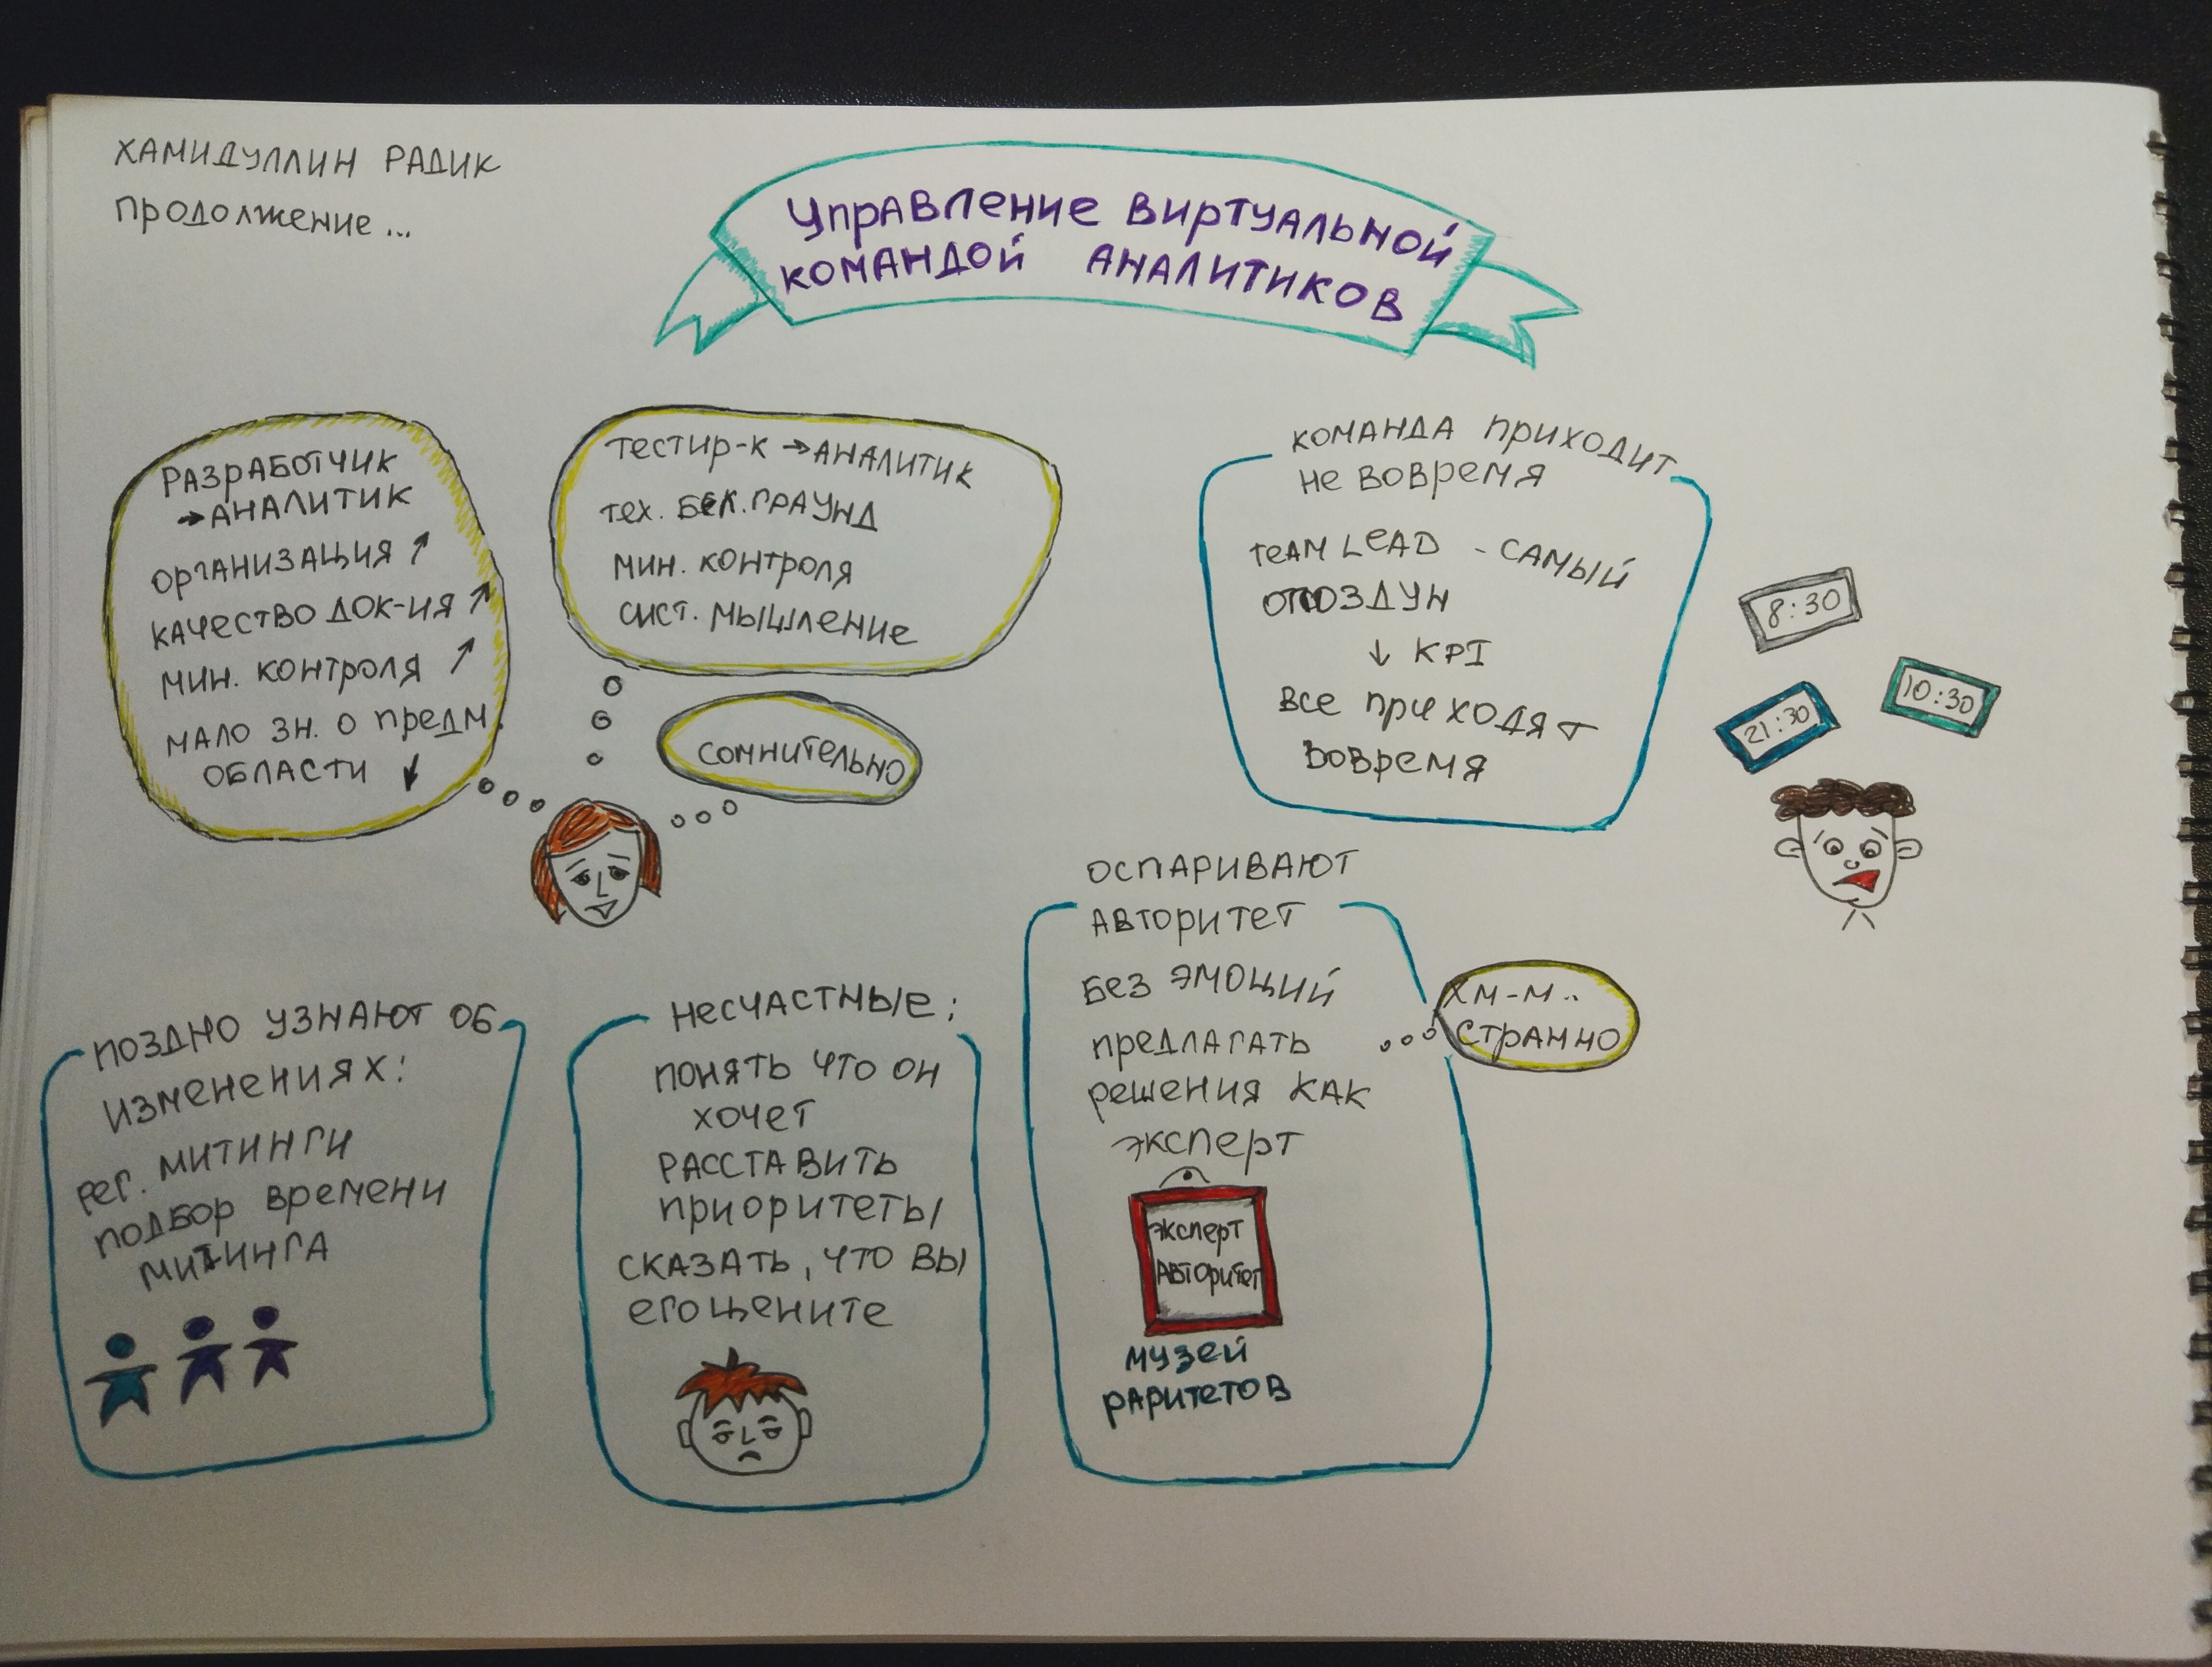 ХАМИДУЛЛИН РАДИК
ПРОДОЛЖЕНИЕ...
УПРАВЛЕНИЕ ВИРТУАЛЬНОЙ
КОМАНДОЙ АНАЛИТИКОВ
РАЗРАБОТЧИК
→ АНАЛИТИК
ОРГАНИЗАЦИЯ ↗
КАЧЕСТВО ДОК-ИЯ ↗
МИН. КОНТРОЛЯ ↗
МАЛО ЗН. О ПРЕДМ.
ОБЛАСТИ ↓
ТЕСТИР-К → АНАЛИТИК
ТЕХ. БЕК.ГРАУНД
МИН. КОНТРОЛЯ
СИСТ. МЫШЛЕНИЕ
СОМНИТЕЛЬНО
КОМАНДА ПРИХОДИТ
НЕ ВОВРЕМЯ
TEAM LEAD - САМЫЙ
ОПОЗДУН
↓ KPI
ВСЕ ПРИХОДЯТ
ВОВРЕМЯ
8:30
10:30
21:30
ПОЗДНО УЗНАЮТ ОБ
ИЗМЕНЕНИЯХ:
РЕГ. МИТИНГИ
ПОДБОР ВРЕМЕНИ
МИТИНГА
НЕСЧАСТНЫЕ:
ПОНЯТЬ ЧТО ОН
ХОЧЕТ
РАССТАВИТЬ
ПРИОРИТЕТЫ
СКАЗАТЬ, ЧТО ВЫ
ЕГО ЦЕНИТЕ
ОСПАРИВАЮТ
АВТОРИТЕТ
БЕЗ ЭМОЦИЙ
ПРЕДЛАГАТЬ
РЕШЕНИЯ КАК
ЭКСПЕРТ
ХМ-М..
СТРАННО
ЭКСПЕРТ
АВТОРИТЕТ
МУЗЕЙ
РАРИТЕТОВ